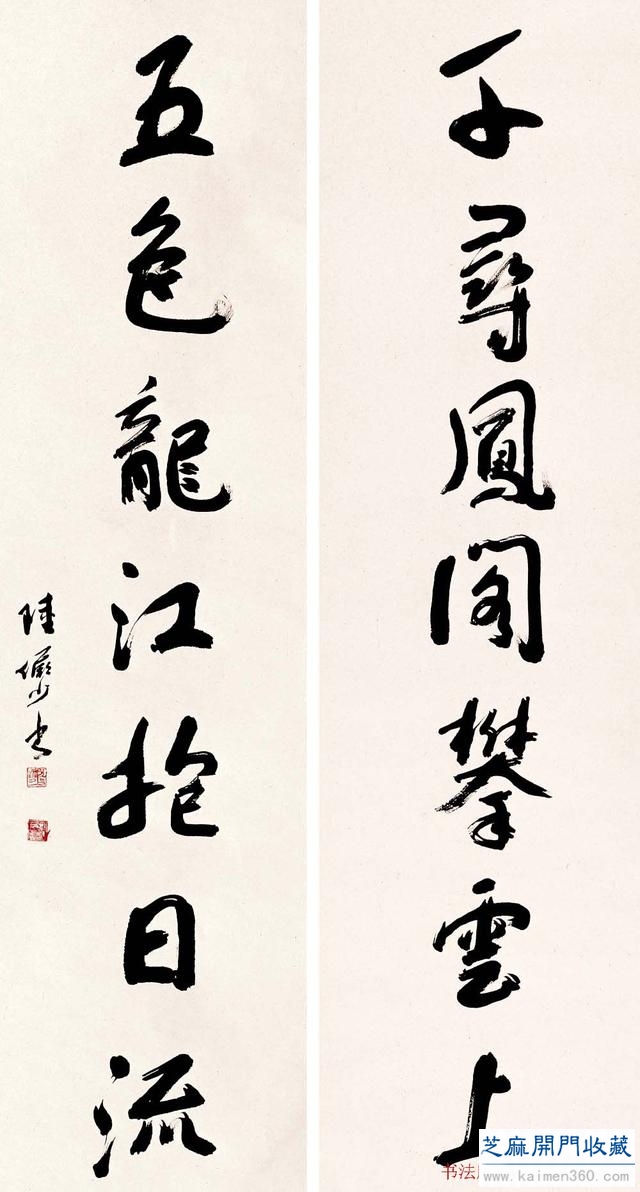 千尋鳳閣攀雲上
五色龍江抱日流
陸儼少書
书法
芝麻開門收藏
www.kaimen360.com